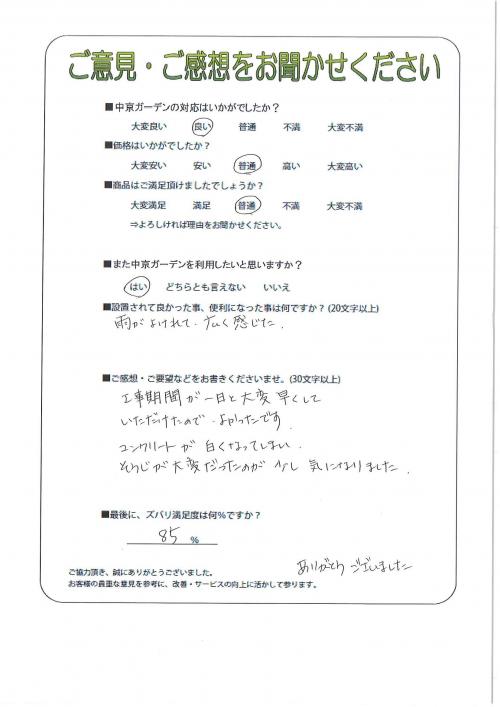 ご意見・ご感想をお聞かせください
■中京ガーデンの対応はいかがでしたか？
大変良い 良い 普通 不満 大変不満
■価格はいかがでしたか？
大変安い 安い 普通 高い 大変高い
■商品はご満足頂けましたでしょうか？
大変満足 満足 普通 不満 大変不満
⇒よろしければ理由をお聞かせください。
■また中京ガーデンを利用したいと思いますか？
はい どちらとも言えない いいえ
■設置されて良かった事、便利になった事は何ですか？(20文字以上)
雨がよけれて、広く感じた.
■ご感想・ご要望などをお書きくださいませ。(30文字以上)
工事期間が一日と大変早くして
いただけたので、よかったです.
コンクリートが白くなってしまい、
そうじが大変だったのが少し気になりました.
■最後に、ズバリ満足度は何％ですか？
85 %
ありがとうございました
ご協力頂き、誠にありがとうございました。
お客様の貴重な意見を参考に、改善・サービスの向上に活かして参ります。